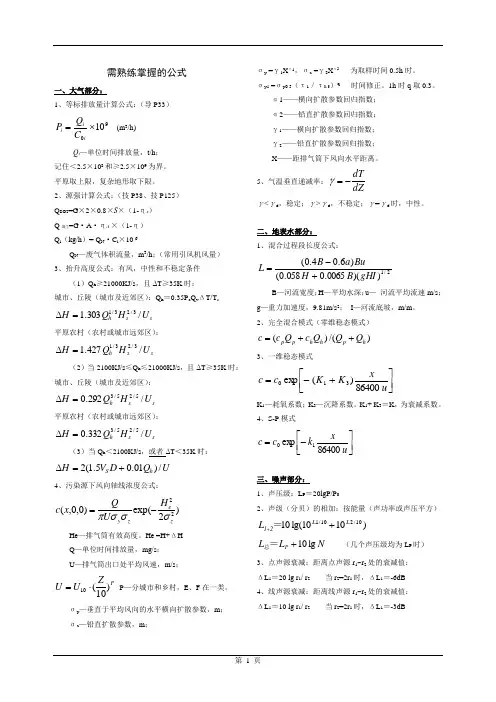 需熟练掌握的公式
一、大气部分：
1、等标排放量计算公式：（导P33）
P_i = Q_i / C_{0i} × 10^9 (m³/h)
Q_i—单位时间排放量，t/h；
记住＜2.5×10⁸和≥2.5×10⁹为界，
平原取上限，复杂地形取下限。
2、源强计算公式：（技P38、技P125）
Q_{SO2}=G×2×0.8×S×（1-η_s）
Q_{烟尘}=G·A·η_A×（1-η）
Q_i（kg/h）= Q_N·C_i×10⁻⁶
Q_N—废气体积流量，m³/h；（常用引风机风量）
3、抬升高度公式：有风，中性和不稳定条件
（1）Q_h≥21000KJ/s，且ΔT≥35K时：
城市、丘陵（城市及近郊区）：Q_h＝0.35P_aQ_vΔT/T_s
ΔH = 1.303Q_h^{1/3}H_s^{2/3}/U_s
平原农村（农村或城市远郊区）：
ΔH = 1.427Q_h^{1/3}H_s^{2/3}/U_s
（2）当2100KJ/s≤Q_h≤21000KJ/s，且ΔT≥35K时：
城市、丘陵（城市及近郊区）：
ΔH = 0.292Q_h^{3/5}H_s^{2/5}/U_s
平原农村（农村或城市远郊区）：
ΔH = 0.332Q_h^{3/5}H_s^{2/5}/U_s
（3）当Q_h＜2100KJ/s，或者ΔT＜35K时：
ΔH = 2(1.5V_sD + 0.01Q_h)/U
4、污染源下风向轴线浓度公式：
c(x,0,0) = Q/(πUσ_yσ_z) exp(−H_e²/2σ_z²)
He—排气筒有效高度。He =H+ΔH
Q—单位时间排放量，mg/s；
U—排气筒出口处平均风速，m/s；
U = U₁₀·(Z/10)^P P—分城市和乡村，E、F在一类。
σ_y—垂直于平均风向的水平横向扩散参数，m；
σ_z—铅直扩散参数，m；
σ_y =γ₁X^{α1}，σ_z =γ₂X^{α2} 为取样时间0.5h时。
σ_{y1} =σ_{y0.5}（τ₁／τ_{0.5}）^q 时间修正。1h时q取0.3。
α1——横向扩散参数回归指数；
α2——铅直扩散参数回归指数；
γ₁——横向扩散参数回归指数；
γ₂——铅直扩散参数回归指数；
X——距排气筒下风向水平距离。
5、气温垂直递减率：γ = −dT/dZ
γ＜γ_d，稳定；γ＞γ_d，不稳定；γ=γ_d时，中性。
二、地表水部分：
1、混合过程段长度公式：
L = (0.4B − 0.6a)Bu / (0.058H + 0.0065B)(gHI)^{1/2}
B—河流宽度；H—平均水深；u— 河流平均流速m/s；
g—重力加速度，9.81m/s²； I—河流底坡，m/m。
2、完全混合模式（零维稳态模式）
c = (c_pQ_p + c_hQ_h)/(Q_p + Q_h)
3、一维稳态模式
c = c₀ exp[−(K₁ + K₃) x/86400u]
K₁—耗氧系数；K₃—沉降系数。K₁+ K₃＝K，为衰减系数。
4、S-P模式
c = c₀ exp[−k₁ x/86400u]
三、噪声部分：
1、声压级：L_P＝20lgP/P₀
2、声级（分贝）的相加：按能量（声功率或声压平方）
L_{1+2}＝10 lg(10^{L1/10} + 10^{L2/10})
L_总＝L_P + 10 lg N （几个声压级均为L_P时）
3、点声源衰减：距离点声源r₁~r₂处的衰减值：
ΔL₁＝20 lg r₁/ r₂ 当r₂=2r₁时，ΔL₁＝-6dB
4、线声源衰减：距离线声源r₁~r₂处的衰减值：
ΔL₁＝10 lg r₁/ r₂ 当r₂=2r₁时，ΔL₁＝-3dB
第 1 页